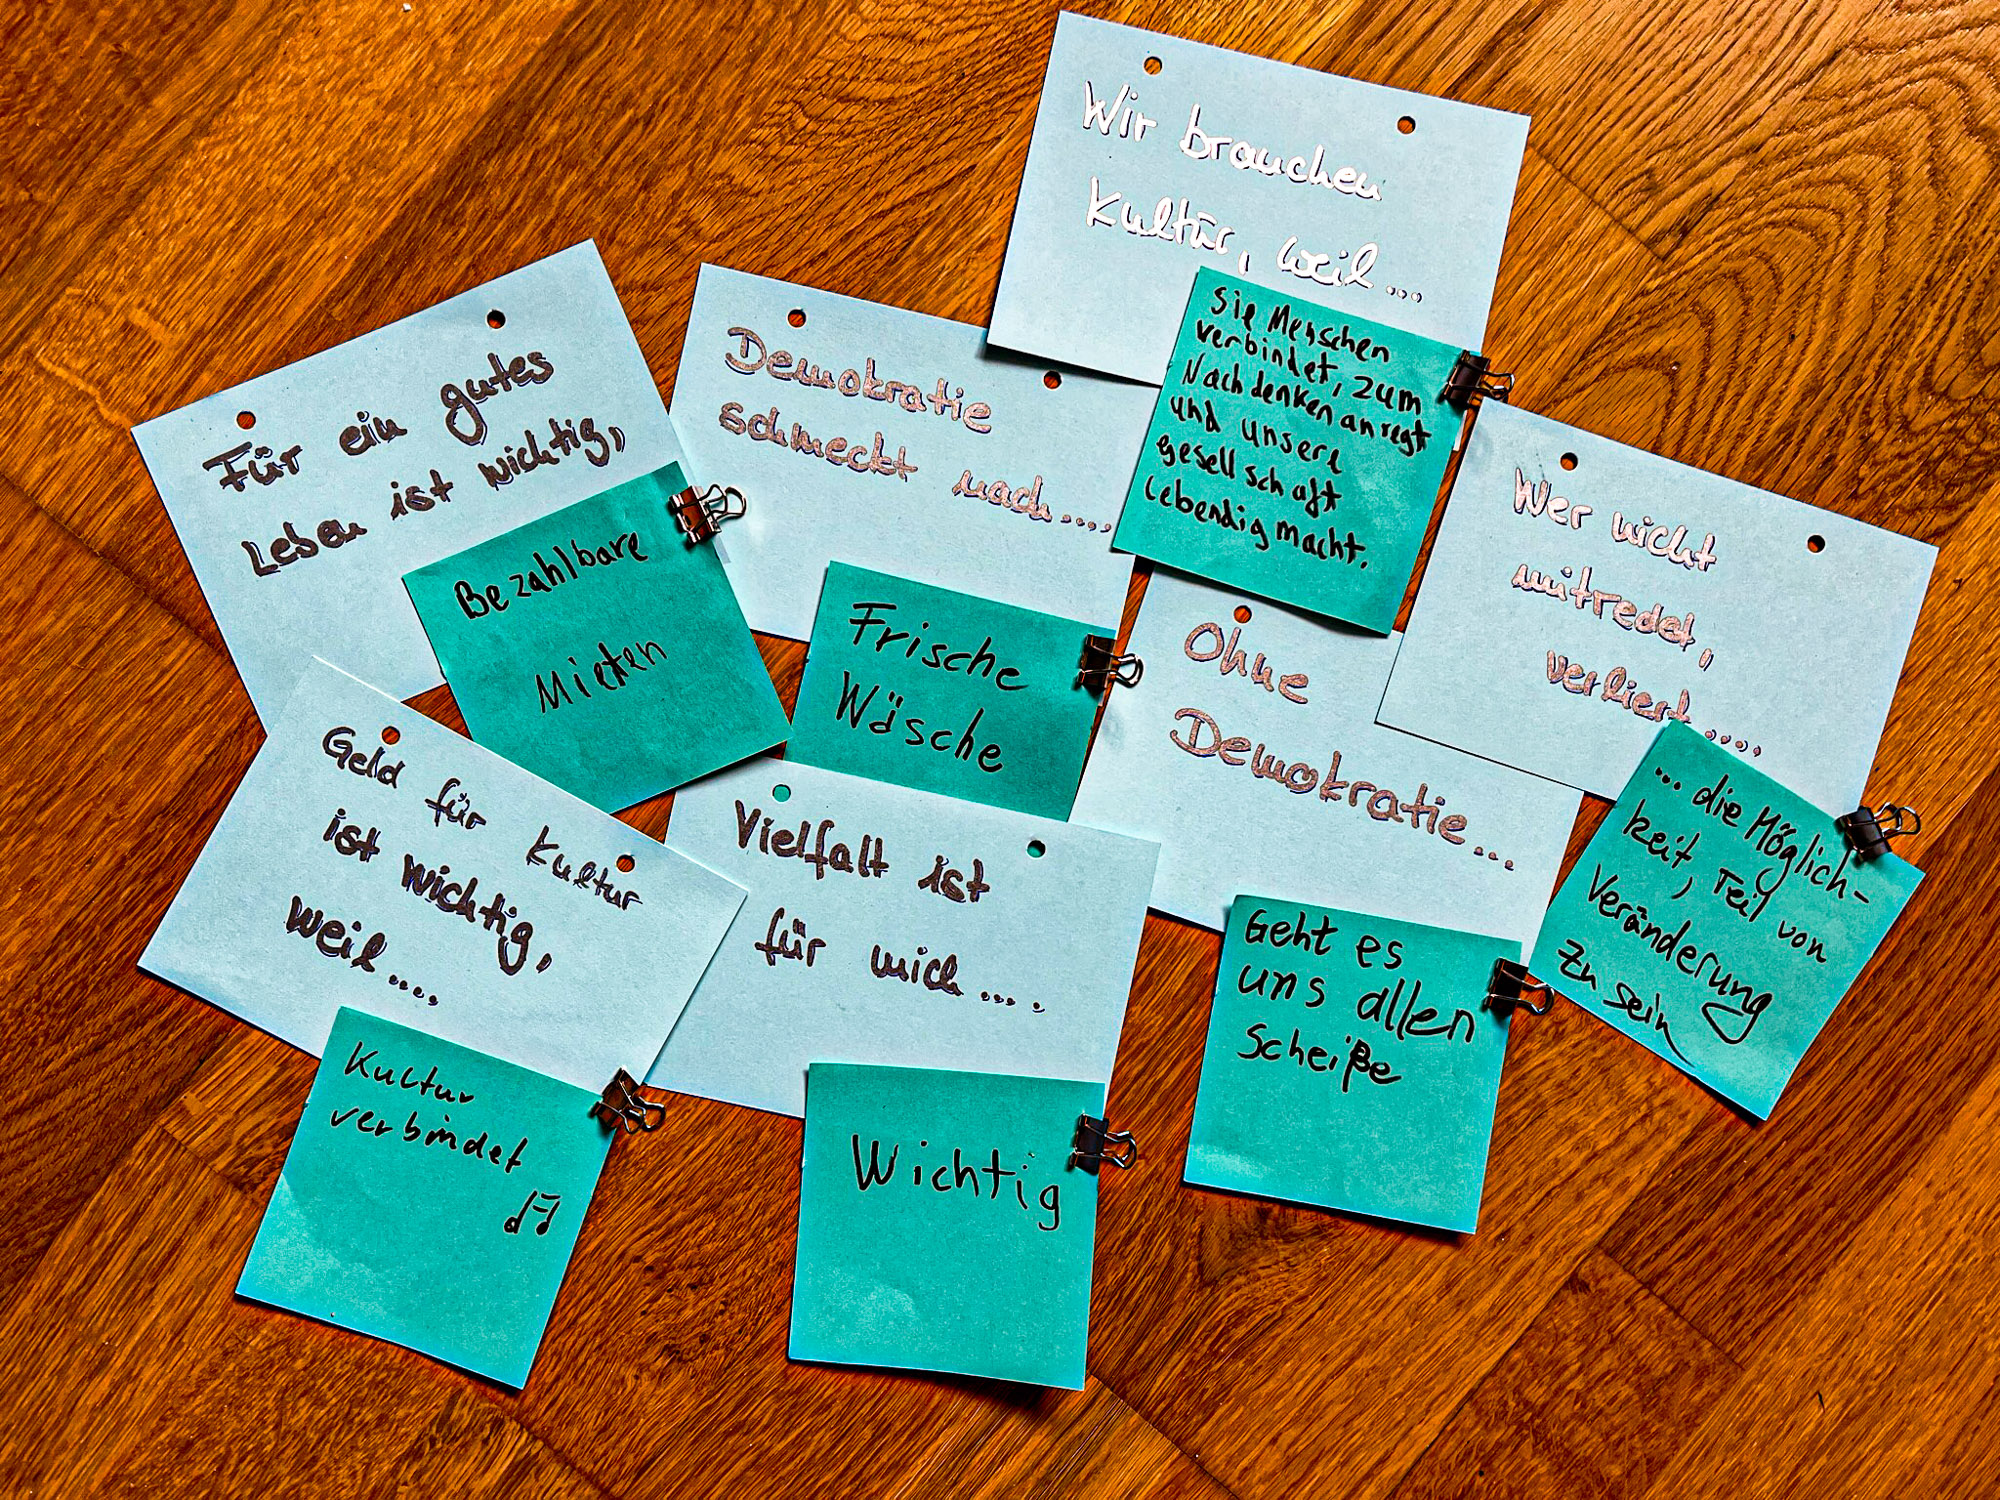 Wir brauchen
Kultur, weil...
sie Menschen
verbindet, zum
Nachdenken anregt
und unsere
Gesellschaft
lebendig macht.
Für ein gutes
Leben ist wichtig,
Bezahlbare
Mieten
Demokratie
schmeckt nach....
Frische
Wäsche
Wer nicht
mitredet,
verliert....
... die Möglich-
keit, Teil von
Veränderung
zu sein
Ohne
Demokratie...
Geht es
uns allen
Scheiße
Geld für Kultur
ist wichtig,
weil....
Kultur
verbindet
Vielfalt ist
für mich....
Wichtig